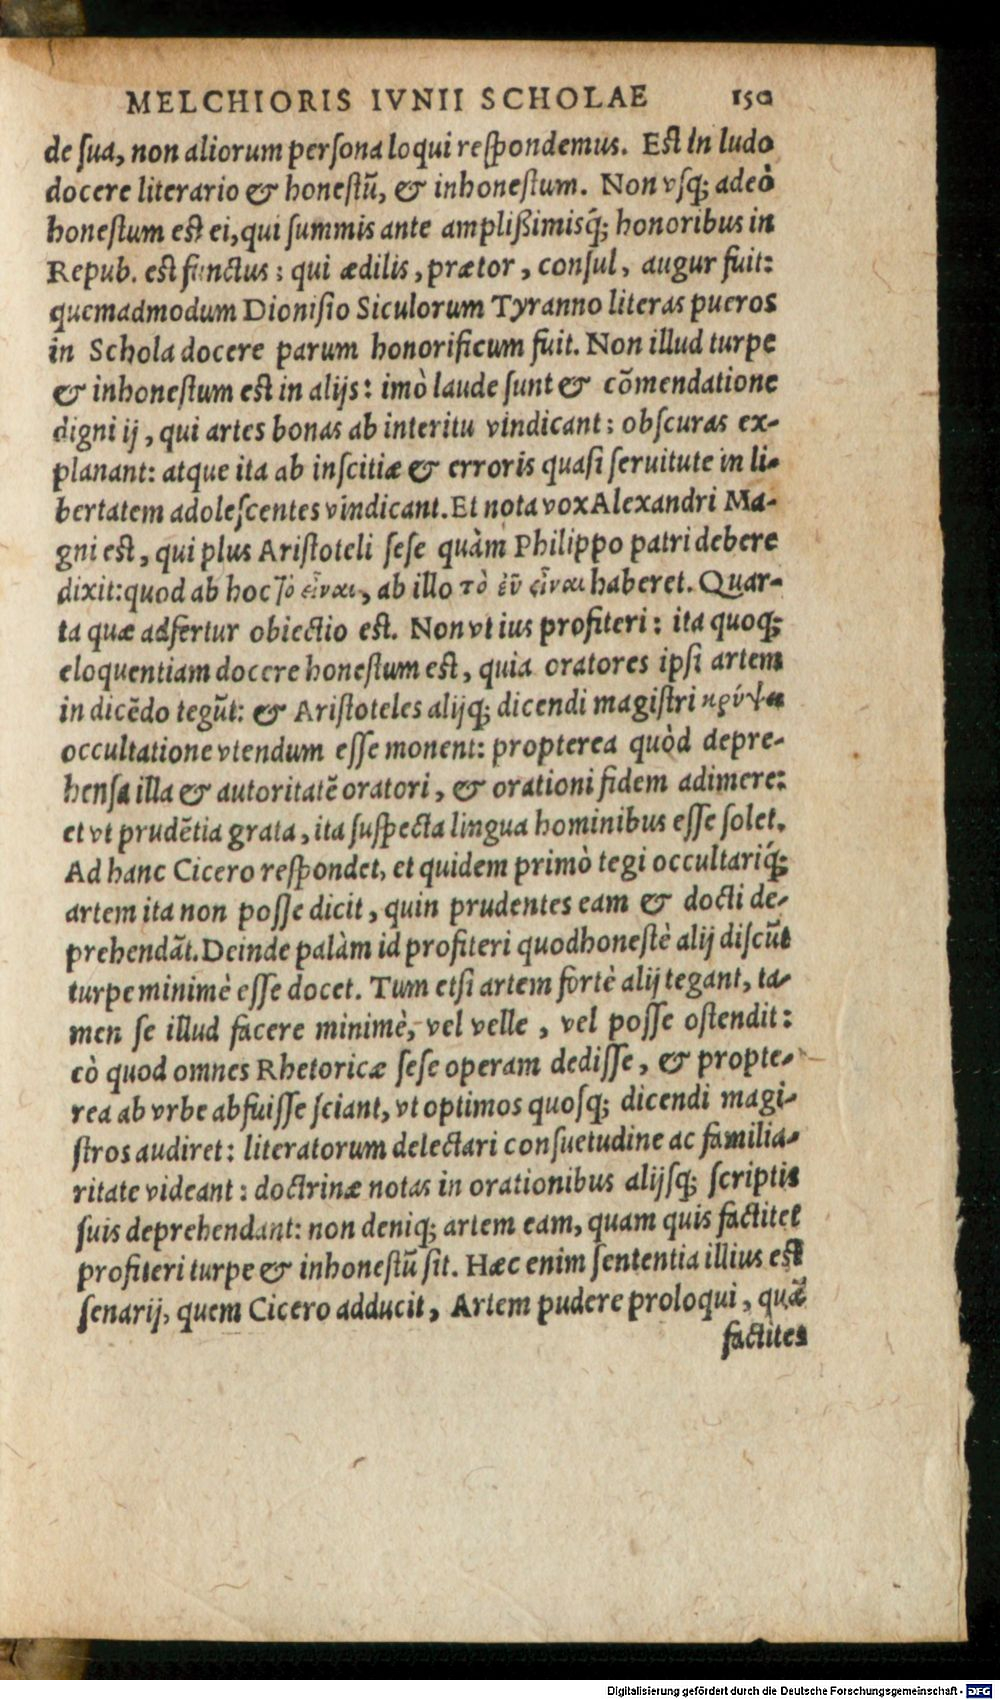 MELCHIORIS IVNII SCHOLAE 150
de sua, non aliorum persona loqui respondemus. Est in ludo
docere literario & honestũ, & inhonestum. Non vsq; adeò
honestum est ei, qui summis ante amplißimisq́; honoribus in
Repub. est functus: qui ædilis, prætor, consul, augur fuit:
quemadmodum Dionisio Siculorum Tyranno literas pueros
in Schola docere parum honorificum fuit. Non illud turpe
& inhonestum est in alijs: imò laude sunt & cõmendatione
digni ij, qui artes bonas ab interitu vindicant: obscuras ex-
planant: atque ita ab inscitiæ & erroris quasi seruitute in li-
bertatem adolescentes vindicant. Et nota vox Alexandri Ma-
gni est, qui plus Aristoteli sese quàm Philippo patri debere
dixit: quod ab hoc τὸ εἶναι, ab illo τὸ εὖ εἶναι haberet. Quar-
ta quæ adfertur obiectio est. Non vt ius profiteri: ita quoq;
eloquentiam docere honestum est, quia oratores ipsi artem
in dicẽdo tegũt: & Aristoteles alijq; dicendi magistri κρύψει
occultatione vtendum esse monent: propterea quòd depre-
hensa illa & autoritatẽ oratori, & orationi fidem adimere:
et vt prudẽtia grata, ita suspecta lingua hominibus esse solet.
Ad hanc Cicero respondet, et quidem primò tegi occultariq́;
artem ita non posse dicit, quin prudentes eam & docti de-
prehendãt. Deinde palàm id profiteri quod honestè alij discũt
turpe minimè esse docet. Tum etsi artem fortè alij tegant, ta-
men se illud facere minimè, vel velle, vel posse ostendit:
eò quod omnes Rhetoricæ sese operam dedisse, & propte-
rea ab vrbe abfuisse sciant, vt optimos quosq; dicendi magi-
stros audiret: literatorum delectari consuetudine ac familia-
ritate videant: doctrinæ notas in orationibus alijsq; scriptis
suis deprehendant: non deniq; artem eam, quam quis factitet
profiteri turpe & inhonestũ sit. Hæc enim sententia illius est
senarij, quem Cicero adducit, Artem pudere proloqui, quã
factites
Digitalisierung gefördert durch die Deutsche Forschungsgemeinschaft - DFG